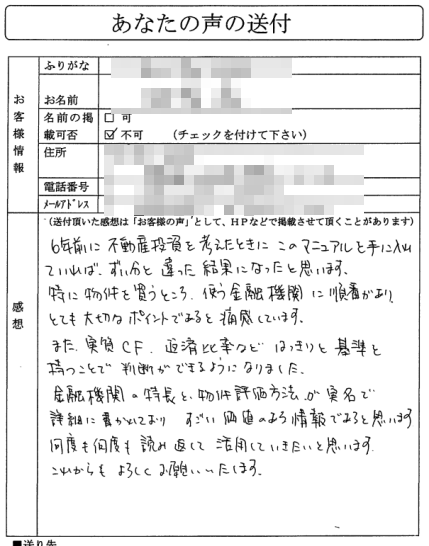 あなたの声の送付
お客様情報
ふりがな
お名前
名前の掲載可否
□ 可
☑ 不可 (チェックを付けて下さい)
住所
電話番号
メールアドレス
感想
(送付頂いた感想は「お客様の声」として、HPなどで掲載させて頂くことがあります)
6年前に不動産投資を考えたときに このマニュアルを手に入れ
ていれば、ずい分と違った結果になったと思います。
特に物件を買うところ、使う金融機関に順番があり
とても大切なポイントであると痛感しています。
また、実質CF、返済比率など はっきりと基準を
持つことで 判断ができるようになりました。
金融機関の特長と、物件評価方法が実名で
詳細に書かれており すごい価値のある情報であると思います
何度も何度も 読み返して 活用していきたいと思います。
これからも よろしくお願いいたします。
■送り先